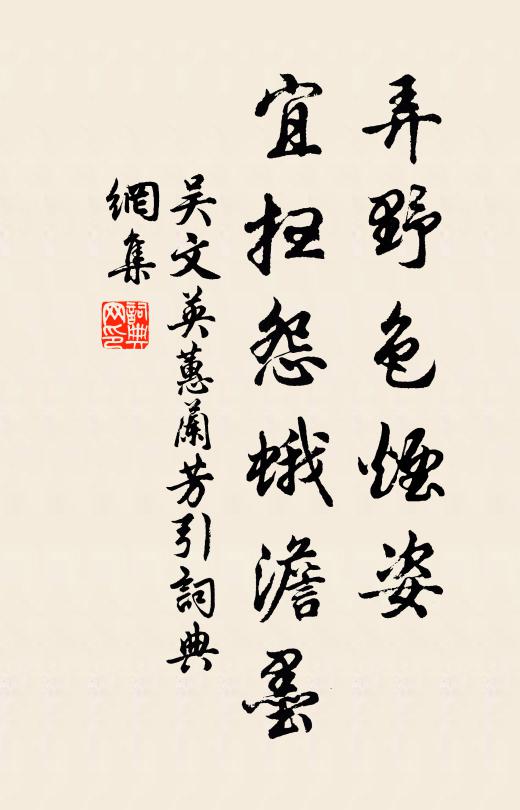 弄野色煙姿
宜扫怨蛾澹墨
吴文英蕙蘭芳引詞典
網集
詞典
网印